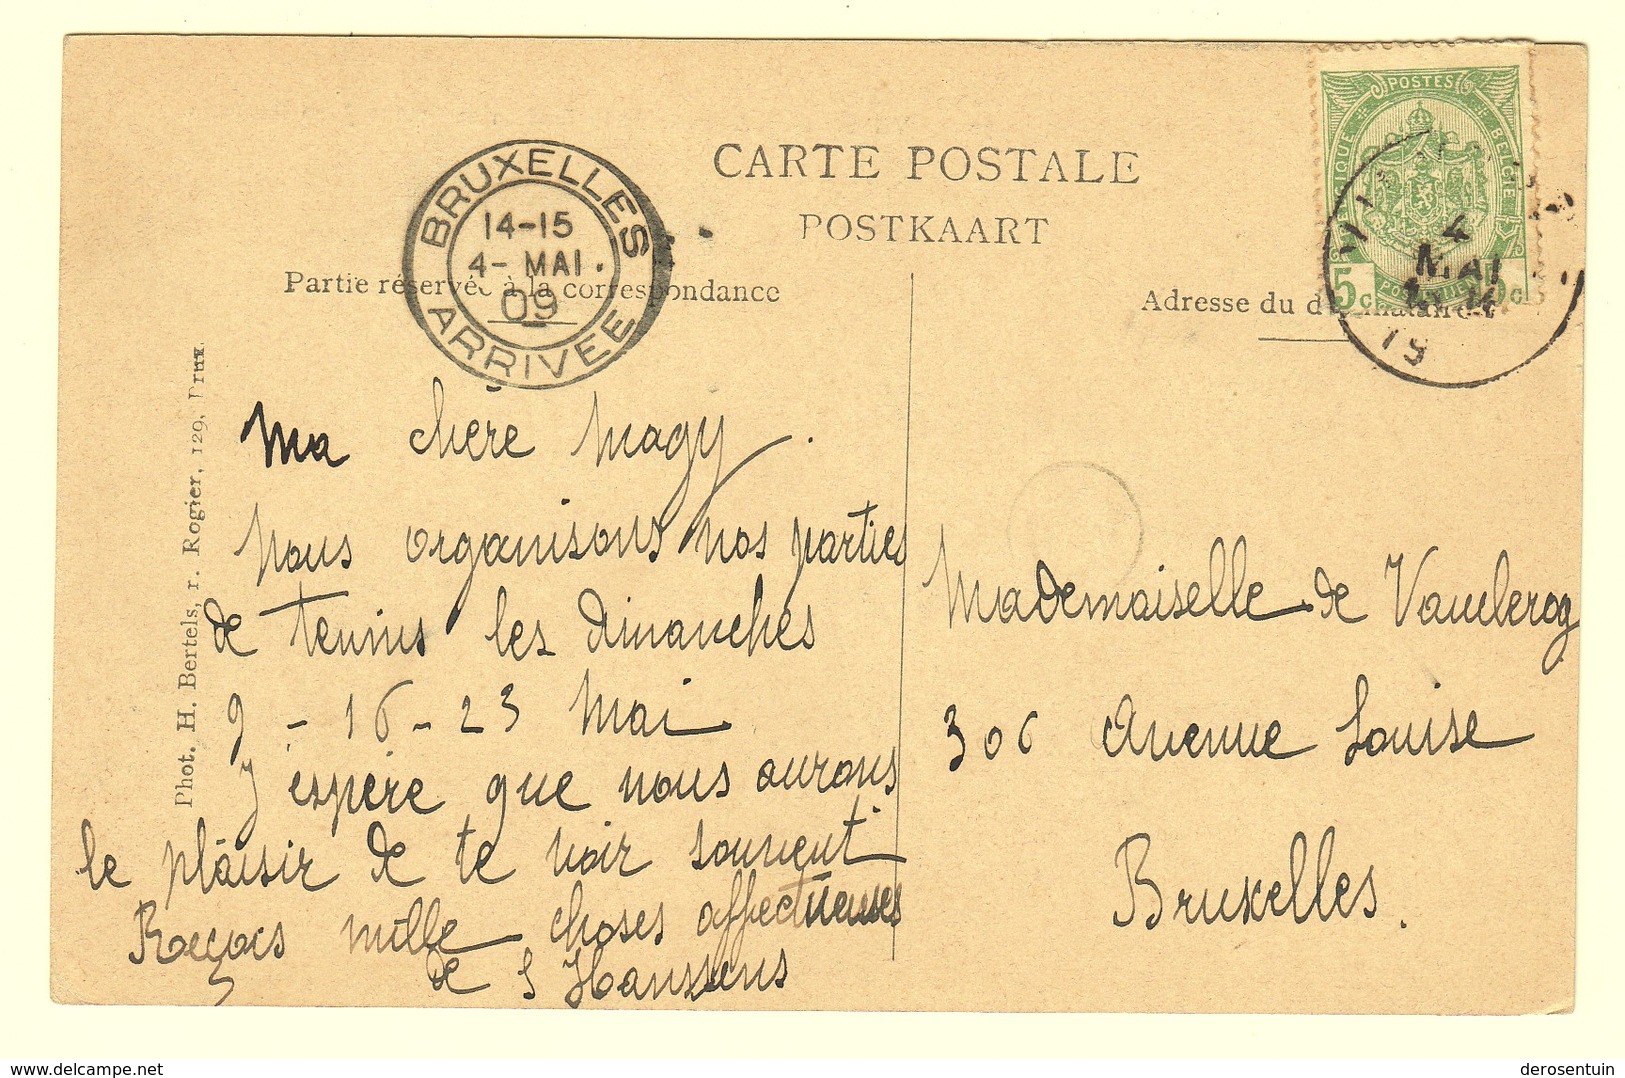 CARTE POSTALE
POSTKAART
Partie réservée à la correspondance
Adresse du destinataire
BRUXELLES
14-15
4- MAI.
09
ARRIVEE
POSTES
BELGIQUE
BELGIE
5c
5c
4
MAI
19
Phot. H. Bertels, r. Rogier, 129, Brux.
Ma chère Magy.
Nous organisons nos parties
de tennis les dimanches
9 - 16 - 23 Mai
J espère que nous aurons
le plaisir de te voir souvent
Reçois mille choses affectueuses
de S Hanssens
Mademoiselle de Vauclerog
306 Avenue Louise
Bruxelles.
delcampe.net
derosentuin